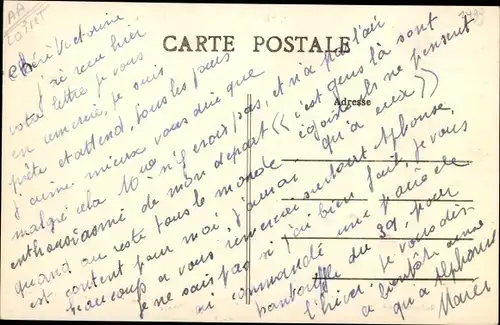 CARTE POSTALE
Adresse
Chère Victorine
J'ai reçu hier
votre lettre je vous
en remercie, je suis
prête et attend, tous les jours
J'aime mieux vous dire que
malgré cela n'y crois pas, et n'a pas l'air
enthousiasmé de mon départ « c'est gens là sont
égoiste ils ne pensent
qu'a eux »
quand au reste tous le monde
est content pour moi, j'aurai
beaucoup a vous remercier surtout Alphonse,
je ne sais pas si j'ai bien fait, je vous
ai commandé une paire de
pantouffle du 39, pour
l'hiver. Je vous dis
a bientôt ainsi
qu'a Alphonse